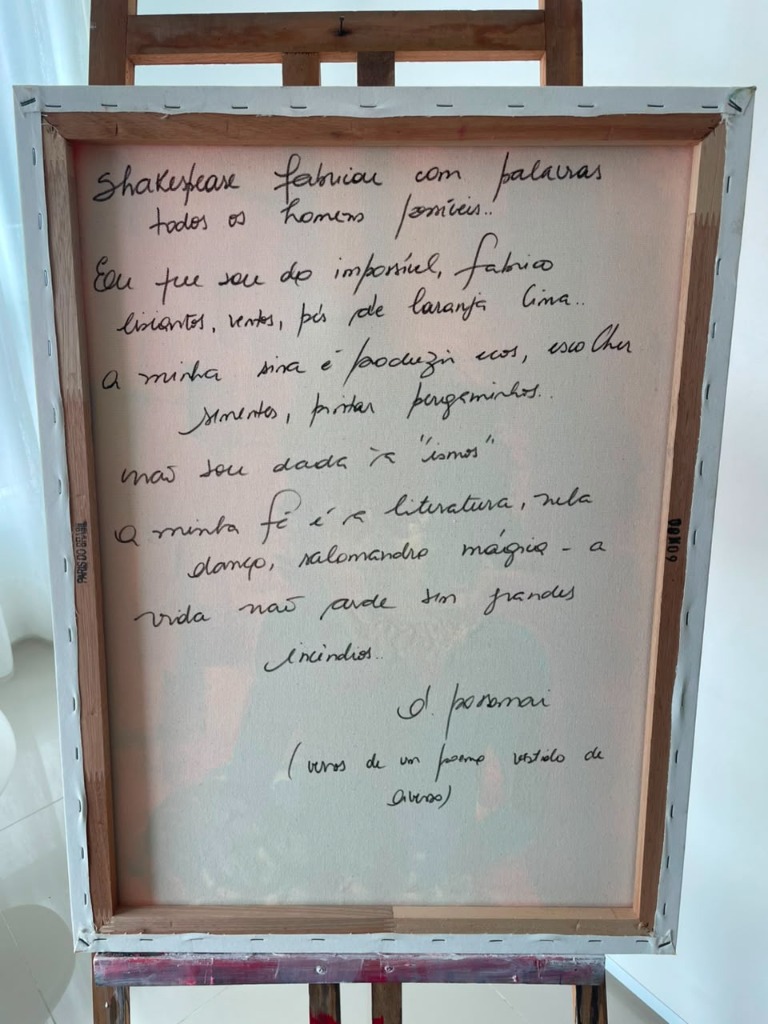 Shakespeare fabricou com palavras
todos os homens possíveis..
Eu que sou do impossível, fabrico
lisiantos, ventos, pés de laranja lima..
a minha sina é produzir ecos, escolher
sementes, pintar pergaminhos..
não sou dada à "ismos"
a minha fé é a literatura, nela
danço, salamandra mágica - a
vida não arde sem grandes
incêndios..
(versos de um poema vestido de
diverso)
PARIS DO BRASIL
60X80